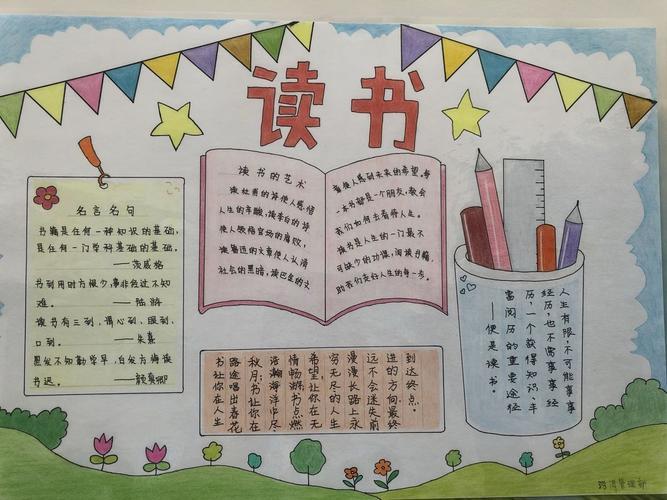 读书
名言名句
书籍是任何一种知识的基础,
是任何一门学科基础的基础。
——茨威格
书到用时方恨少,事非经过不知
难。 ——陆游
读书有三到,谓心到、眼到、
口到。 ——朱熹
黑发不知勤学早,白发方悔读
书迟。 ——颜真卿
读书的艺术
读杜甫的诗使人感悟
人生的辛酸,读李白的诗
使人领悟官场的腐败,
读鲁迅的文章使人认清
社会的黑暗,读巴金的文
章使人感到未来的希望。每
一本书都是一个朋友,教会
我们如何去看待人生。
读书是人生的一门最不
可缺少的功课,阅读书籍,
助我们走好人生的每一步。
书让你在人生
路途唱出春花
秋月;书让你在
浩瀚海洋中尽
情畅游;书点燃
希望让你在无
穷无尽的人生
漫漫长路上永
远不会迷失前
进的方向最终
到达终点。
人生有限,不可能事事
经历,也不需事事经
历,一个获得知识、丰
富阅历的重要途径
——便是读书。
管理部